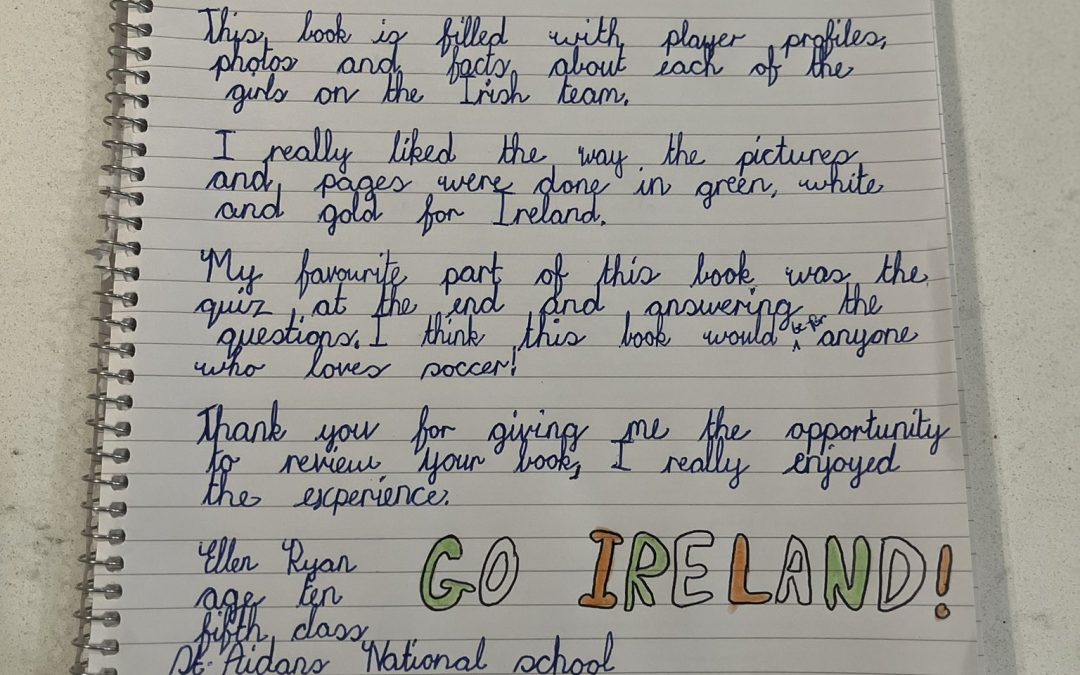 This book is filled with player profiles,
photos and facts about each of the
girls on the Irish team.
I really liked the way the pictures
and pages were done in green, white
and gold for Ireland.
My favourite part of this book was the
quiz at the end and answering the
questions. I think this book would be for anyone
who loves soccer!
Thank you for giving me the opportunity
to review your book, I really enjoyed
the experience.
Ellen Ryan
age ten
fifth class
St. Aidans National school
GO IRELAND!